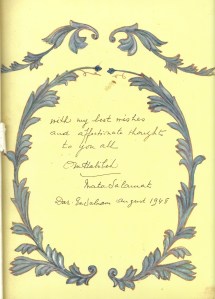 with my best wishes
and affectionate thoughts
to you all
Mata Salamat
Dar-Es-Salaam August 1948